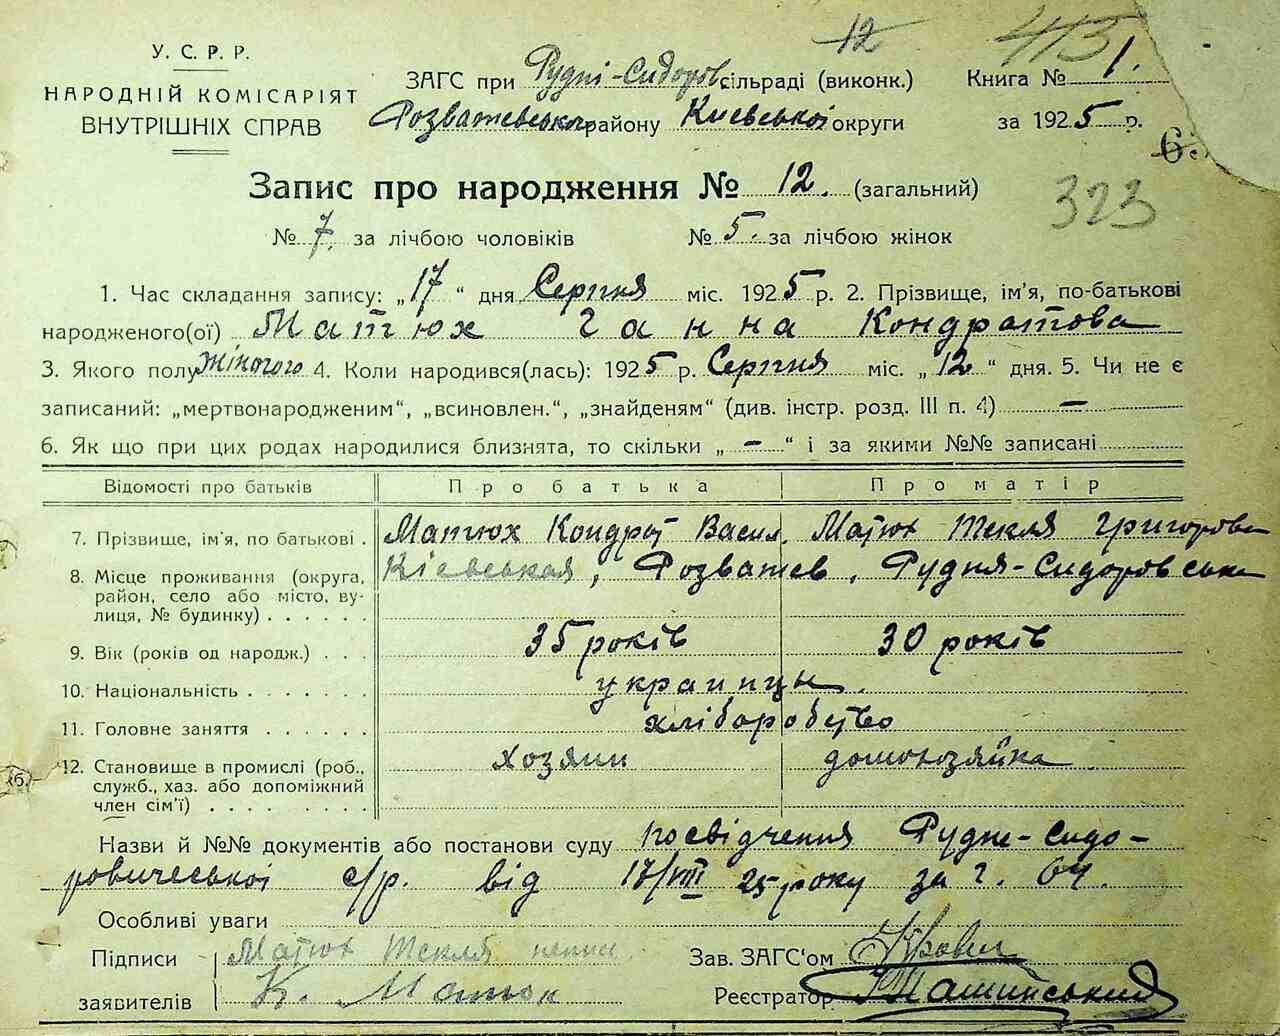 12 473
У. С. Р. Р.
НАРОДНІЙ КОМІСАРІЯТ
ВНУТРІШНІХ СПРАВ
ЗАГС при Рудні-Сидоров. сільраді (виконк.) Книга № 1.
Розважевського району Киевської округи за 1925 р.
63
Запис про народження № 12. (загальний)
323
№ 7. за лічбою чоловіків № 5. за лічбою жінок
1. Час складання запису: „17“ дня Серпня міс. 1925 р. 2. Прізвище, ім’я, по-батькові
народженого(ої) Матюх Ганна Кондратова
3. Якого полу жіночого 4. Коли народився(лась): 1925 р. Серпня міс. „12“ дня. 5. Чи не є
записаний: „мертвонародженим“, „всиновлен.“, „знайденям“ (див. інстр. розд. III п. 4) —
6. Як що при цих родах народилися близнята, то скільки „ — “ і за якими №№ записані
Відомості про батьків Про батька Про матір
7. Прізвище, ім’я, по батькові . Матюх Кондрат Васил. Матюх Текля Григорова
8. Місце проживання (округа, Кіевськая, Розважев, Рудня-Сидоровська
район, село або місто, ву-
лиця, № будинку) . . . . . .
9. Вік (років од народж.) . . . 35 років 30 років
10. Національність . . . . . . . украинцы.
11. Головне заняття . . . . . . хліборобство
12. Становище в промислі (роб., хозяин домохозяйка
служб., хаз. або допоміжний
член сім’ї) . . . . . . . .
Назви й №№ документів або постанови суду посвідчення Рудне-Сидо-
ровичеської с/р. від 17/VIII 25 року за г. 64.
Особливі уваги
Підписи Матюх Текля Зав. ЗАГС‘ом
заявителів К. Матюх Реєстратор